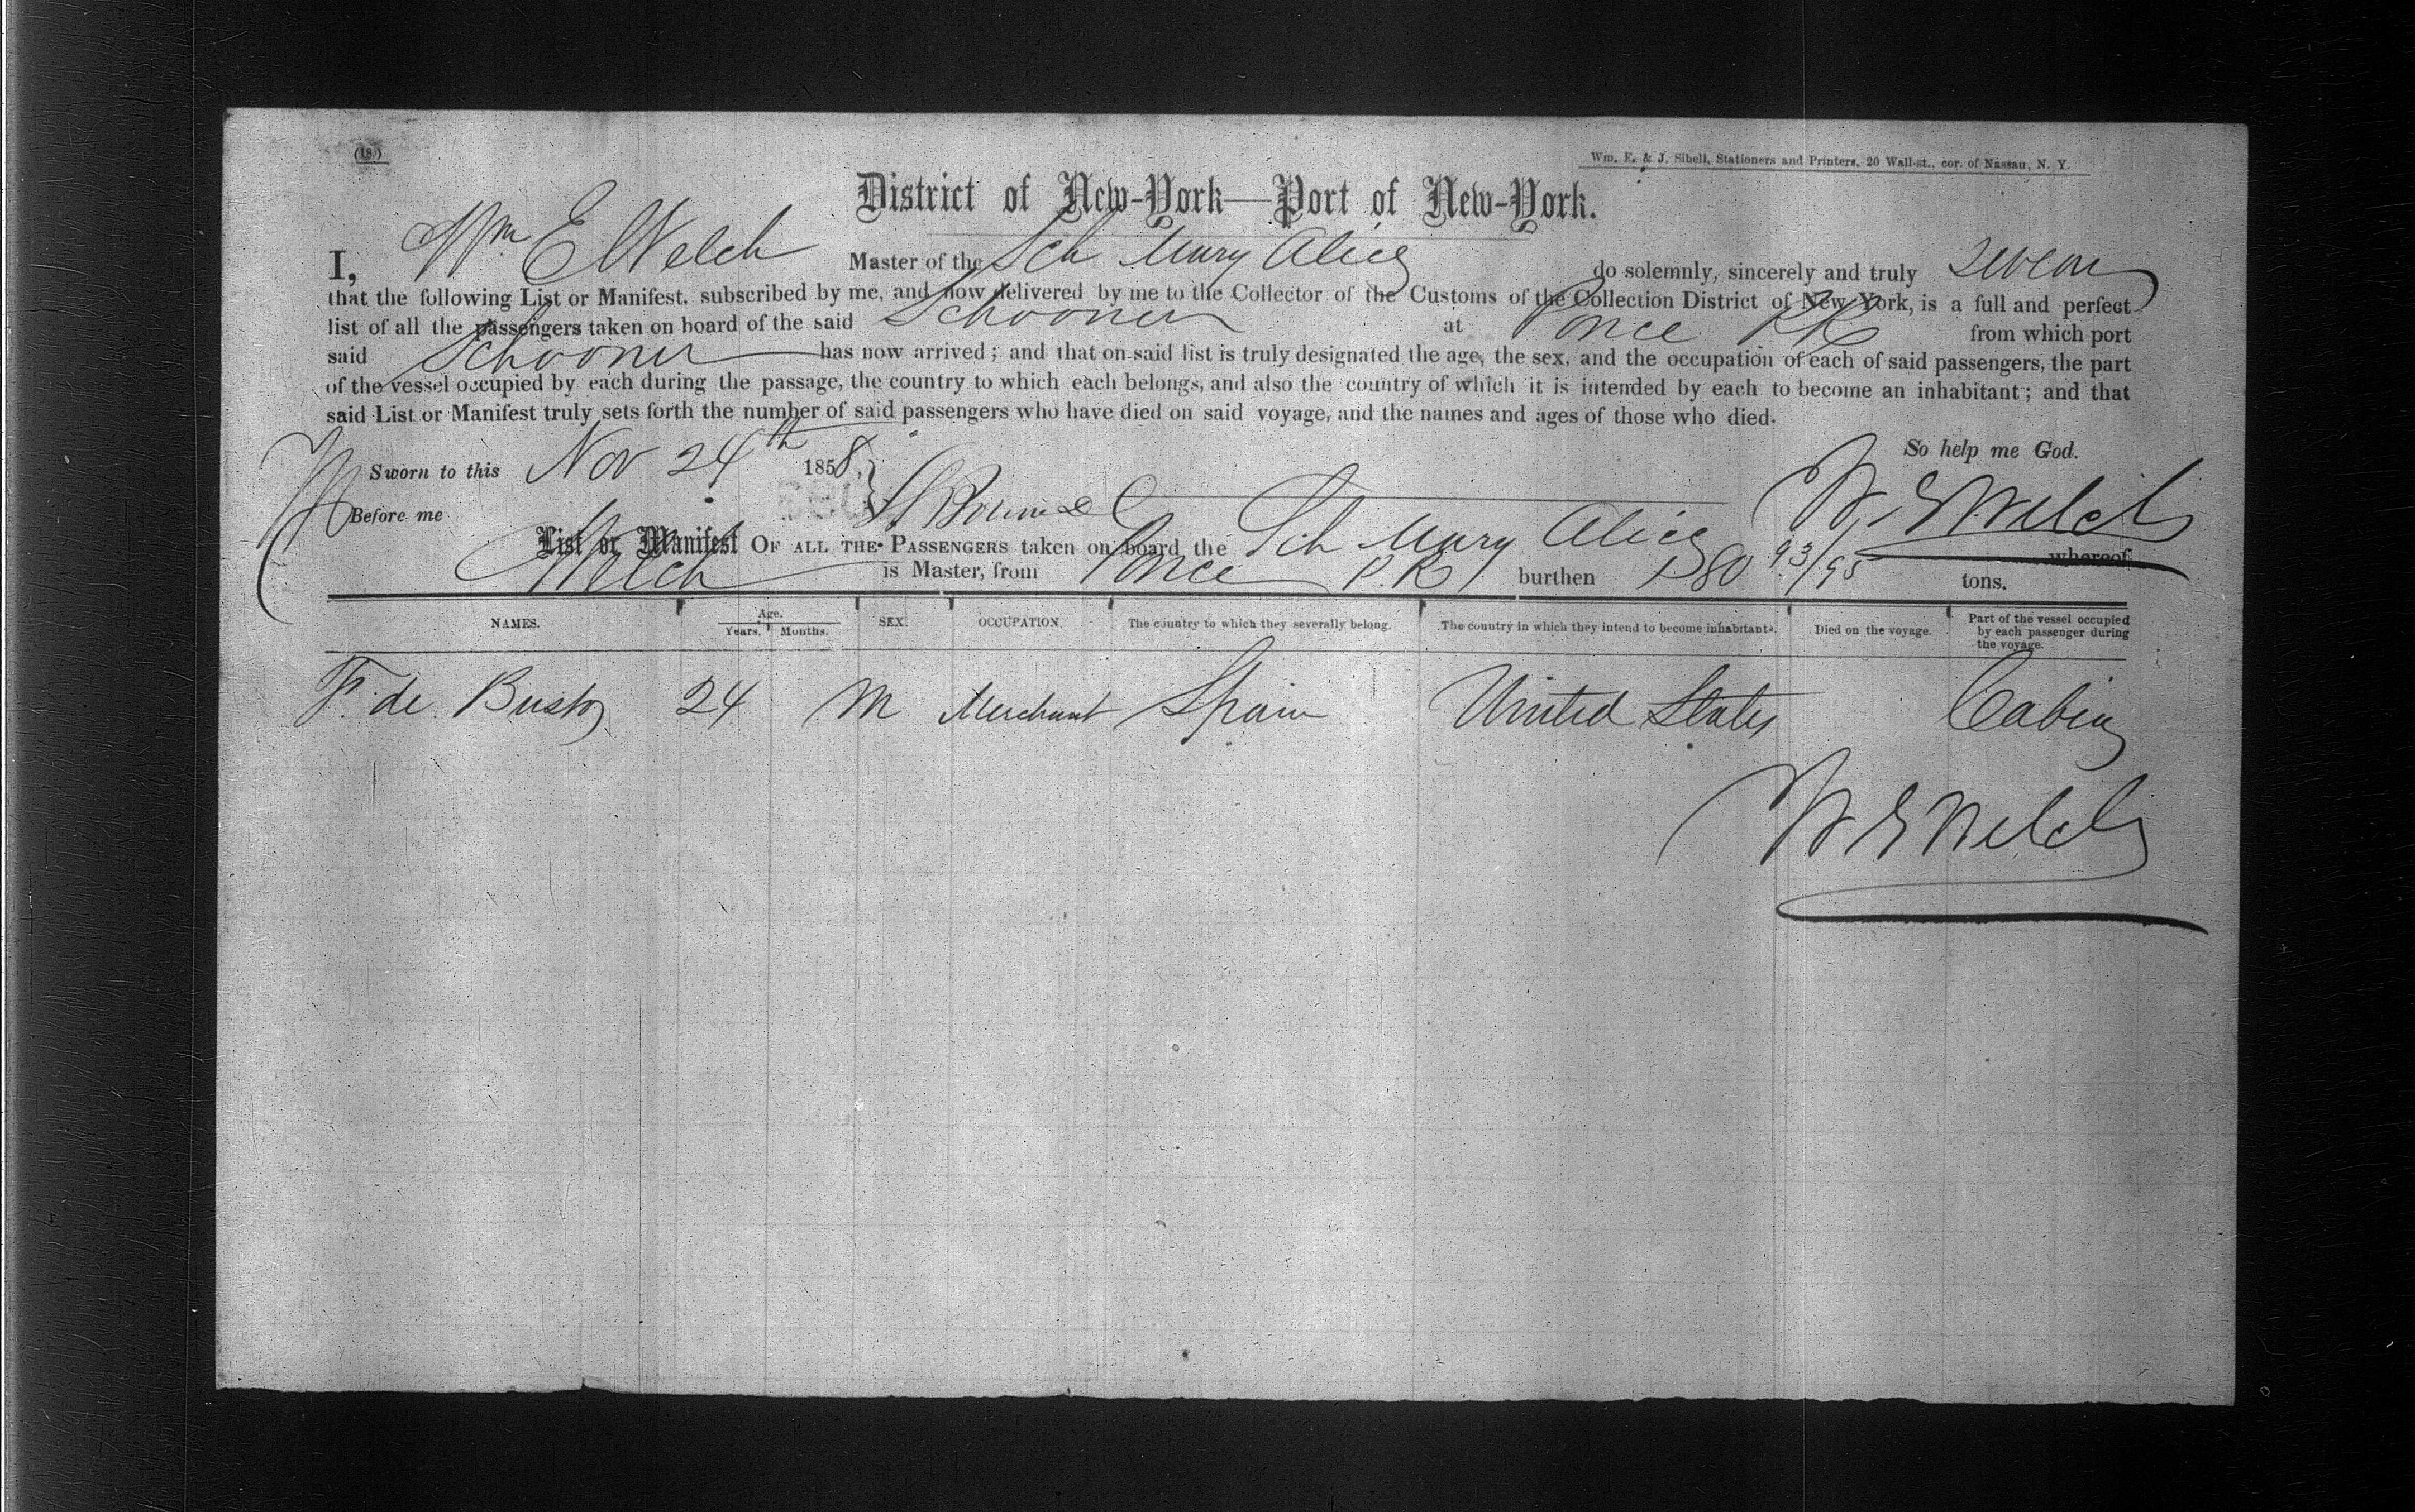 (18)
Wm. E. & J. Sibell, Stationers and Printers, 20 Wall-st., cor. of Nassau, N. Y.
District of New-York—Port of New-York.
I, Wm E Welch Master of the Sch Mary Alice do solemnly, sincerely and truly swear
that the following List or Manifest, subscribed by me, and now delivered by me to the Collector of the Customs of the Collection District of New York, is a full and perfect
list of all the passengers taken on board of the said Schooner at Ponce PR from which port
said Schooner has now arrived; and that on said list is truly designated the age, the sex, and the occupation of each of said passengers, the part
of the vessel occupied by each during the passage, the country to which each belongs, and also the country of which it is intended by each to become an inhabitant; and that
said List or Manifest truly sets forth the number of said passengers who have died on said voyage, and the names and ages of those who died.
So help me God.
Sworn to this Nov 24th 1858.
W. E Welch
Before me
List or Manifest OF ALL THE PASSENGERS taken on board the Sch Mary Alice whereof
Welch is Master, from Ponce P.R burthen 180 93/95 tons.
NAMES. Age. Years. Months. SEX. OCCUPATION. The country to which they severally belong. The country in which they intend to become inhabitants. Died on the voyage. Part of the vessel occupied by each passenger during the voyage.
F. de Busto 24 M Merchant Spain United States Cabin
W E Welch